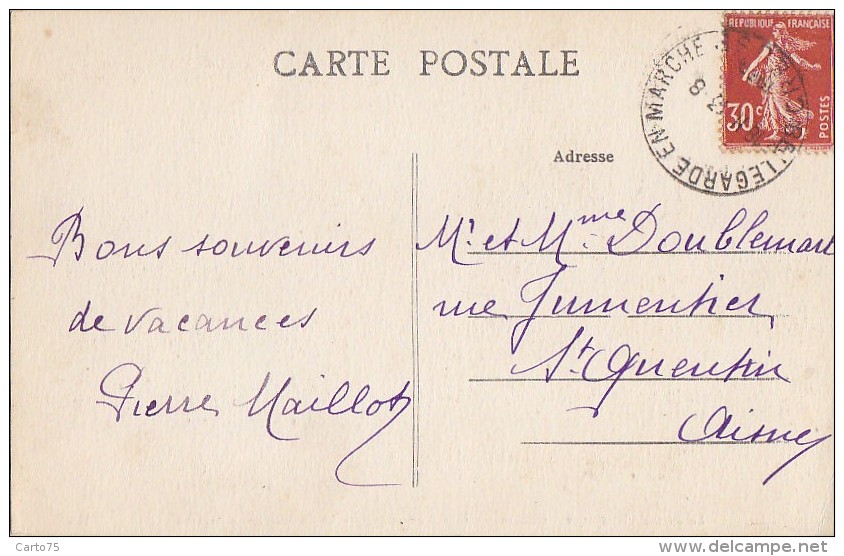 CARTE POSTALE
RÉPUBLIQUE FRANÇAISE
30c
POSTES
BELLEGARDE EN MARCHE
Adresse
Bons souvenirs
de vacances
Pierre Maillot
Mr. et Mme. Doublemart
rue Jumentier
St Quentin
Aisne
Carto75
http://www.delcampe.net